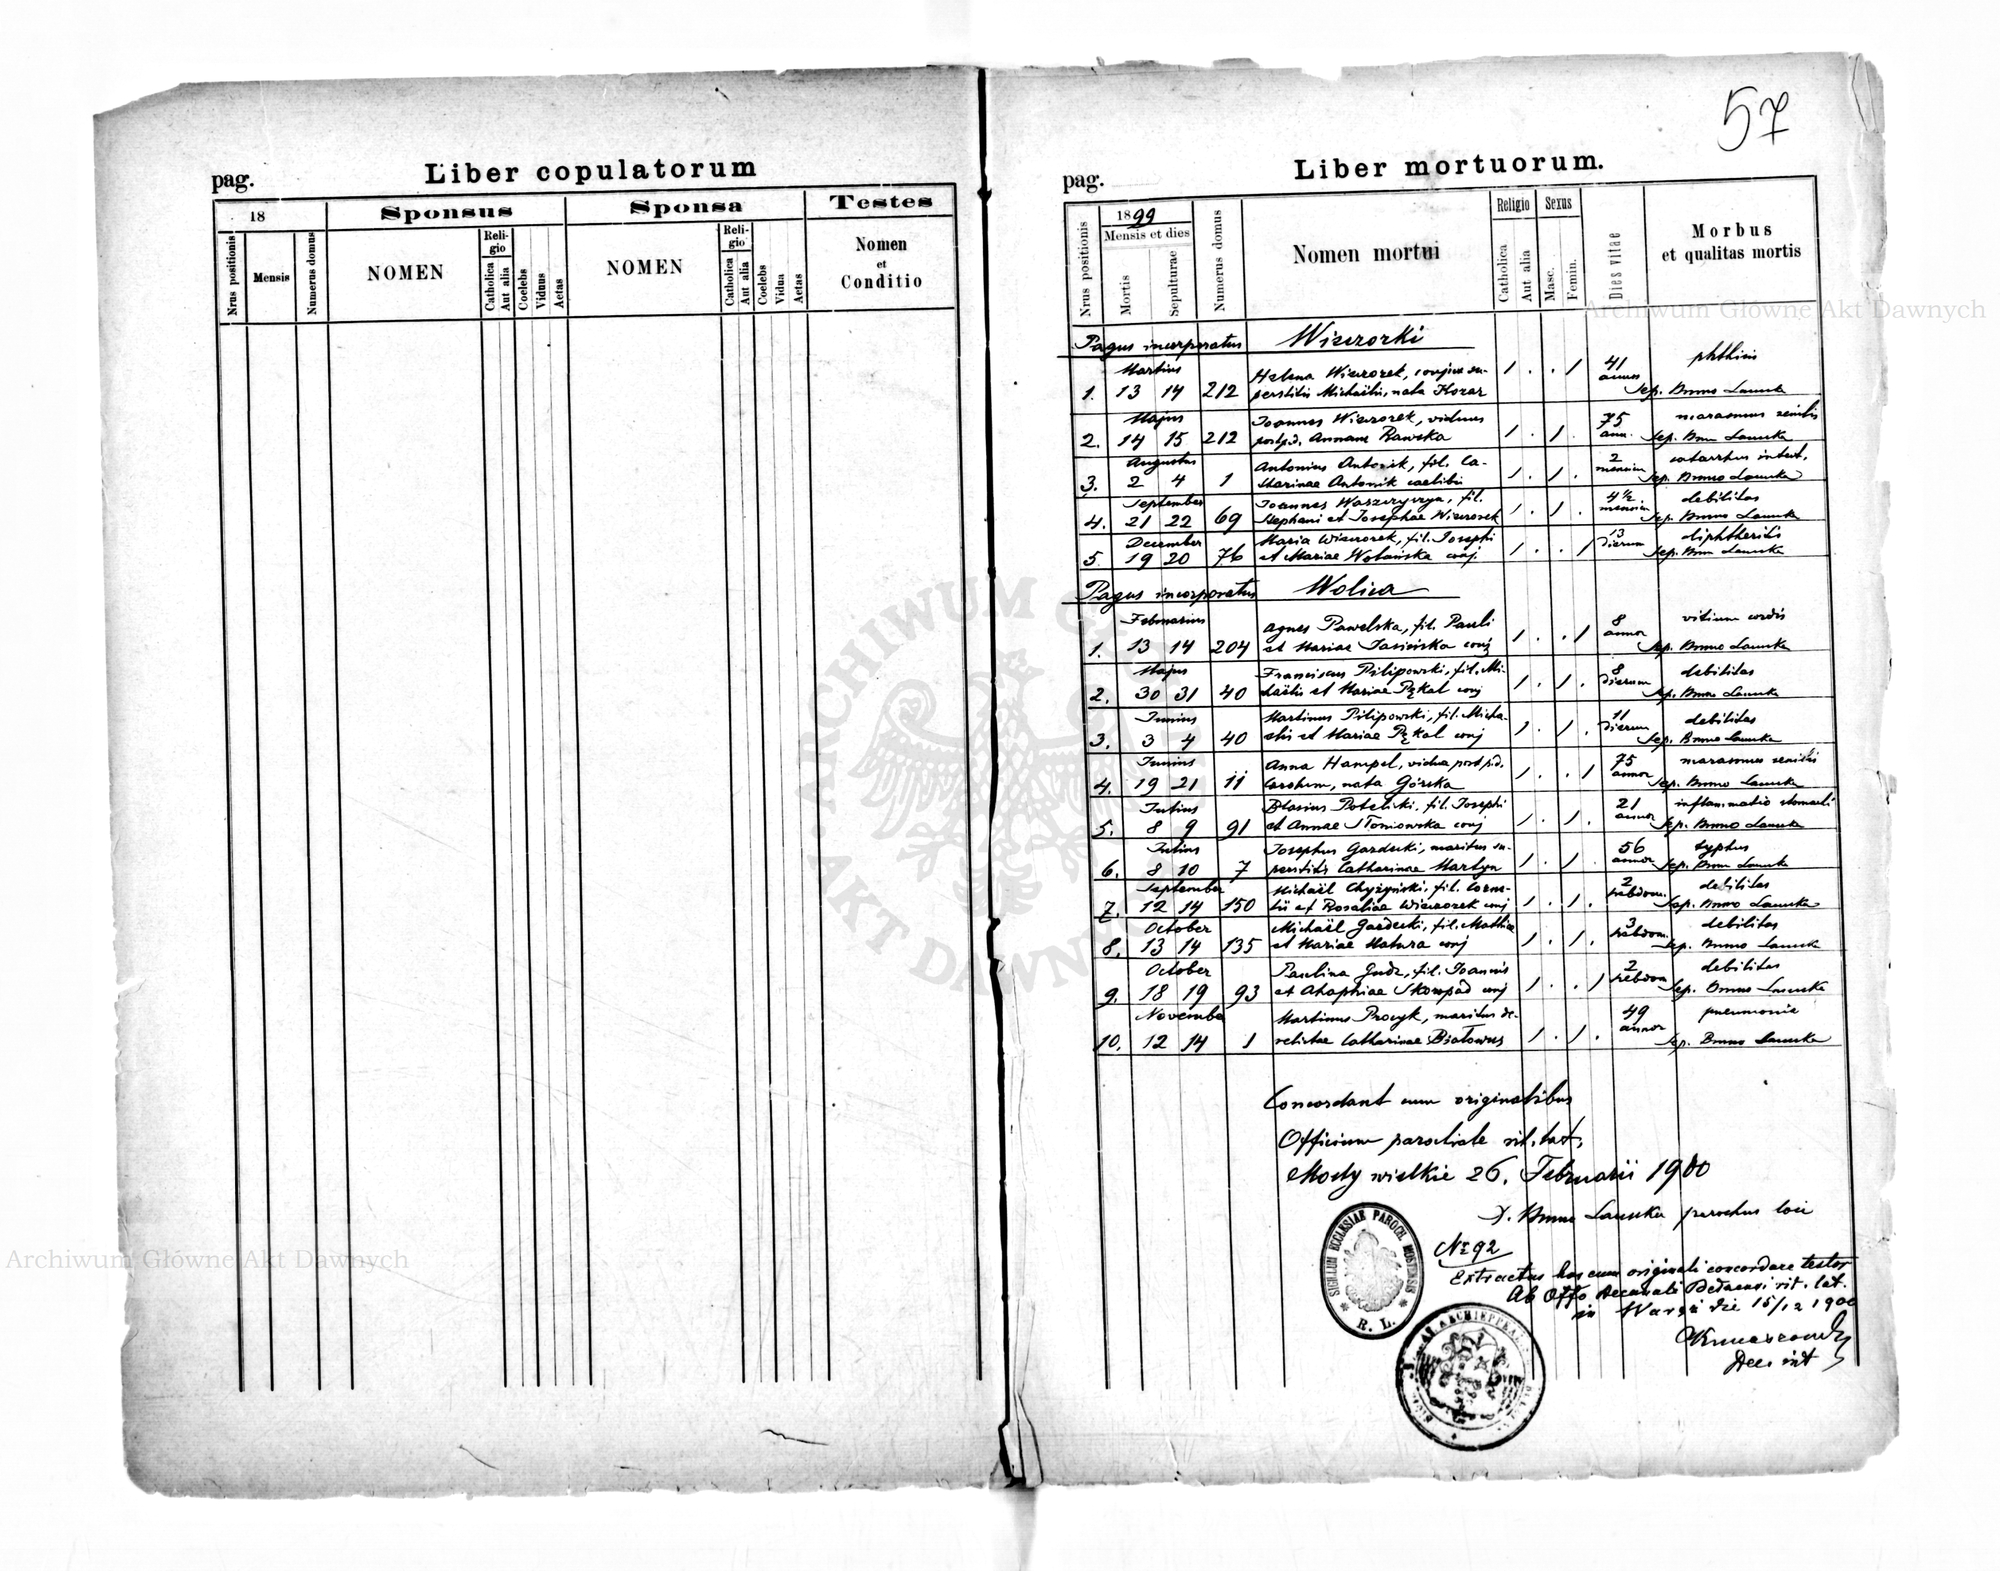 57
pag.
Liber copulatorum
18
Sponsus
Sponsa
Testes
Nrus positionis
Mensis
Numerus domus
NOMEN
Reli-
gio
Catholica
Aut alia
Coelebs
Viduus
Aetas
NOMEN
Reli-
gio
Catholica
Aut alia
Coelebs
Vidua
Aetas
Nomen
et
Conditio
pag.
Liber mortuorum.
Nrus positionis
1899
Mensis et dies
Mortis
Sepulturae
Numerus domus
Nomen mortui
Religio
Catholica
Aut alia
Sexus
Masc.
Femin.
Dies vitae
Morbus
et qualitas mortis
Pagus incorporatus Wieczorki
Martius 41 phthisis
Helena Wieczorek, conjux su- annos
1. 13 14 212 perstitis Michaëlis, nata Kozar Sep. Bruno
Majus Joannes Wieczorek, viduus 75 marasmus senilis
2. 14 15 212 post p.d. Annam Rawska ann. Sep.
Augustus Antonius Antonik, fil. Ca- 2 catarrhus intest.
3. 2 4 1 tharinae Antonik caelibis mensium Sep. Bruno
September Joannes fil. 4½ debilitas
4. 21 22 69 Stephani et Josephae Wieczorek mensium Sep. Bruno
December Maria Wieczorek, fil. Josephi 13 diphtheritis
5. 19 20 76 et Mariae Wolańska conj dierum Sep.
Pagus incorporatus Wolica
Februarius Agnes Pawelska, fil. Pauli 8 vitium cordis
1. 13 14 204 et Mariae Jasińska conj annor Sep. Bruno
Majus Franciscus Pilipowski, fil. Mi- 8 debilitas
2. 30 31 40 chaëlis et Mariae Pękal conj dierum Sep. Bruno
Junius Martinus Pilipowski, fil. Micha- 11 debilitas
3. 3 4 40 elis et Mariae Pękal conj dierum Sep. Bruno
Junius Anna Hampel, vidua post p.d. 75 marasmus senilis
4. 19 21 11 nata Górska annor Sep. Bruno
Julius Blasius fil. Josephi 21 inflammatio stomachi
5. 8 9 91 et Annae Słoniowska conj annor Sep. Bruno
Julius Josephus Gardecki, maritus su- 56 typhus
6. 8 10 7 perstitis Catharinae Martyn annor Sep. Bruno
September Michaël Chyżyński, fil. Corne- 2 debilitas
7. 12 14 150 lii et Rosaliae Wieczorek conj hebdom. Sep. Bruno
October Michaël Gardecki, fil. Mathiae 3 debilitas
8. 13 14 135 et Mariae Matura conj hebdom. Sep. Bruno
October Paulina Gudz, fil. Joannis 2 debilitas
9. 18 19 93 et Ahaphiae Skompad conj hebdom Sep. Bruno
November Martinus Procyk, maritus de- 49 pneumonia
10. 12 14 1 relictae Catharinae Białowus annor Sep. Bruno
Concordant cum originalibus
Officium parochiale rit. lat.
Mosty wielkie 26. Februarii 1900
X. Bruno parochus loci
SIGILLUM ECCLESIAE PAROCH. MOSTENSIS
R. L.
Nr 92
Extractus hos cum originali concordare testor
Ab Offo Decanali Belzensi rit. lat.
in Waręż die 15/12 1900
Dec. int
Archiwum Główne Akt Dawnych
Archiwum Główne Akt Dawnych
ARCHIWUM GŁÓWNE AKT DAWNYCH